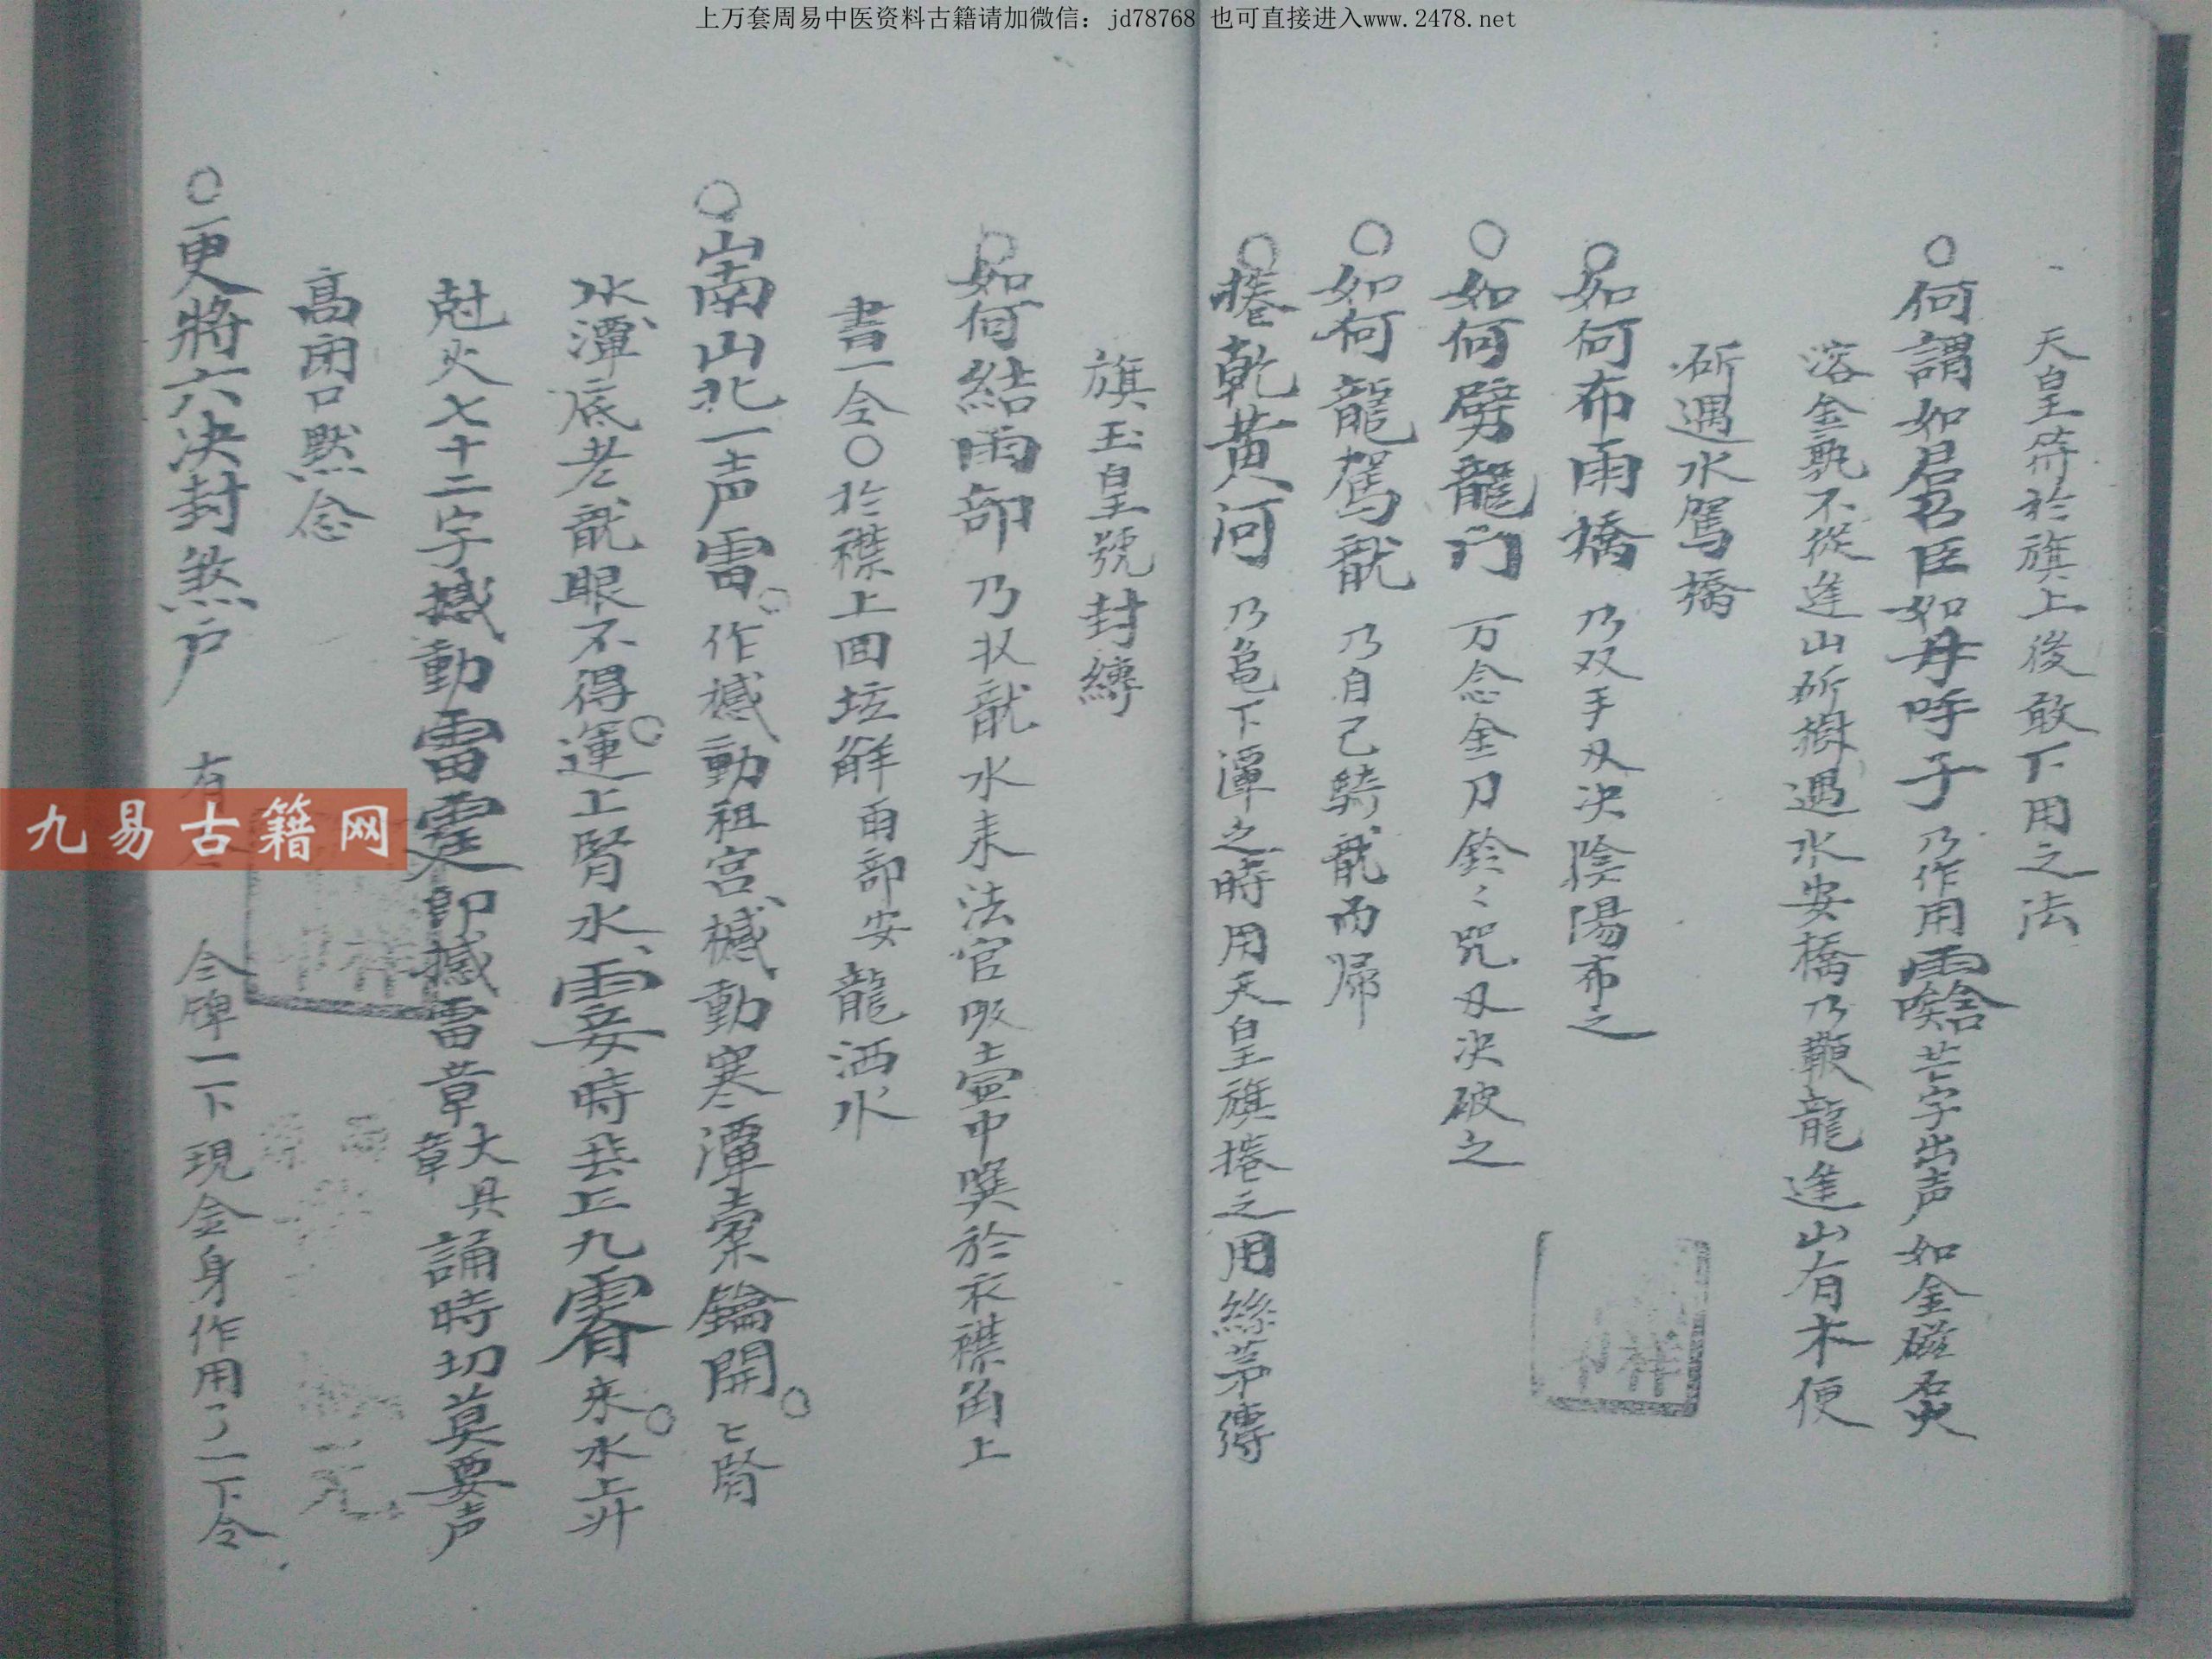 上万套周易中医资料古籍请加微信：jd78768 也可直接进入www.2478.net
天皇符於旗上後敢下用之法
○何謂如君召臣如母呼子乃作用 出声如金磁石火
溶金熟不從進山斫樹遇水安橋乃鞭龍進山有木便
斫遇水駕橋
○如何布雨橋 乃双手叉决陰陽布之
○如何劈龍门 一万念金刀鈴〻咒叉决破之
○如何龍駕龍 乃自己騎龍而歸
○捲乾黄河 乃下潭之時用天皇旗捲之用絲茅縛
旗玉皇號封縛
○如何結雨部 乃收龍水来法官吸壶中噀於衣襟角上
書一令○於襟上回坛解雨部安龍洒水
○崗南山北一声雷。作撼動祖宫、撼動寒潭橐鑰開。匕腎
水潭底老龍眼不得。運上腎水、霎時飛上九霄来。水上升
尅火七十二字撼動雷霆即撼雷章大具誦時切莫要声
高闭口默念
○更將六决封煞户 有令 令牌一下現金身作用了一下令
九易古籍网